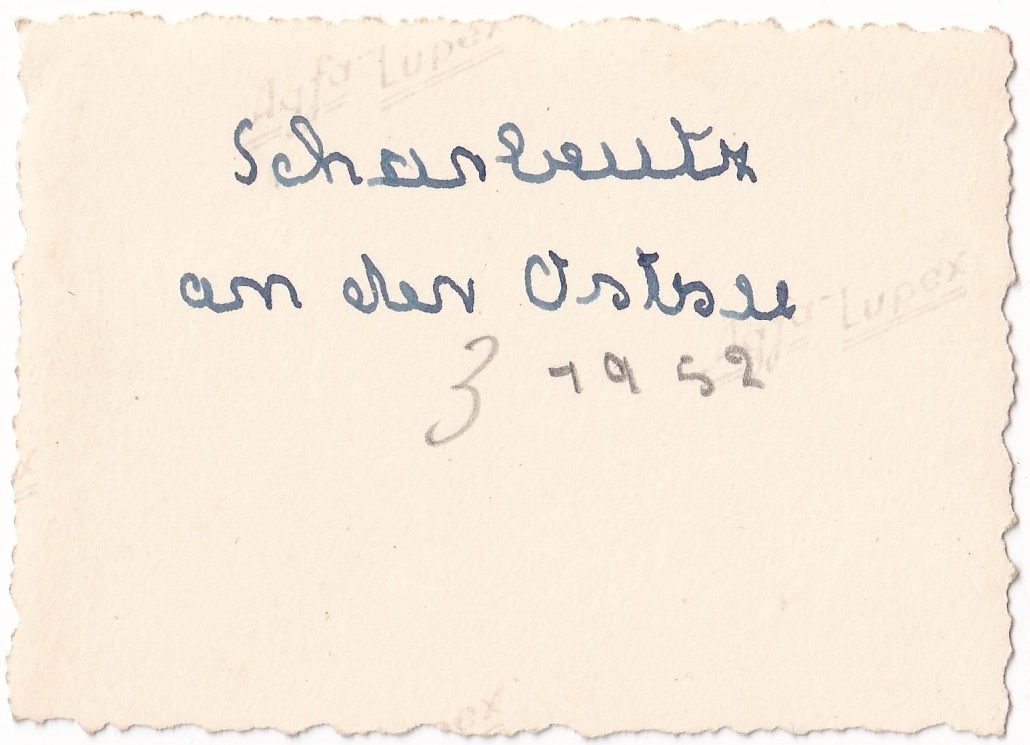 Agfa-Lupex
Scharbeutz
an der Ostsee
Agfa-Lupex
3 1952
ox